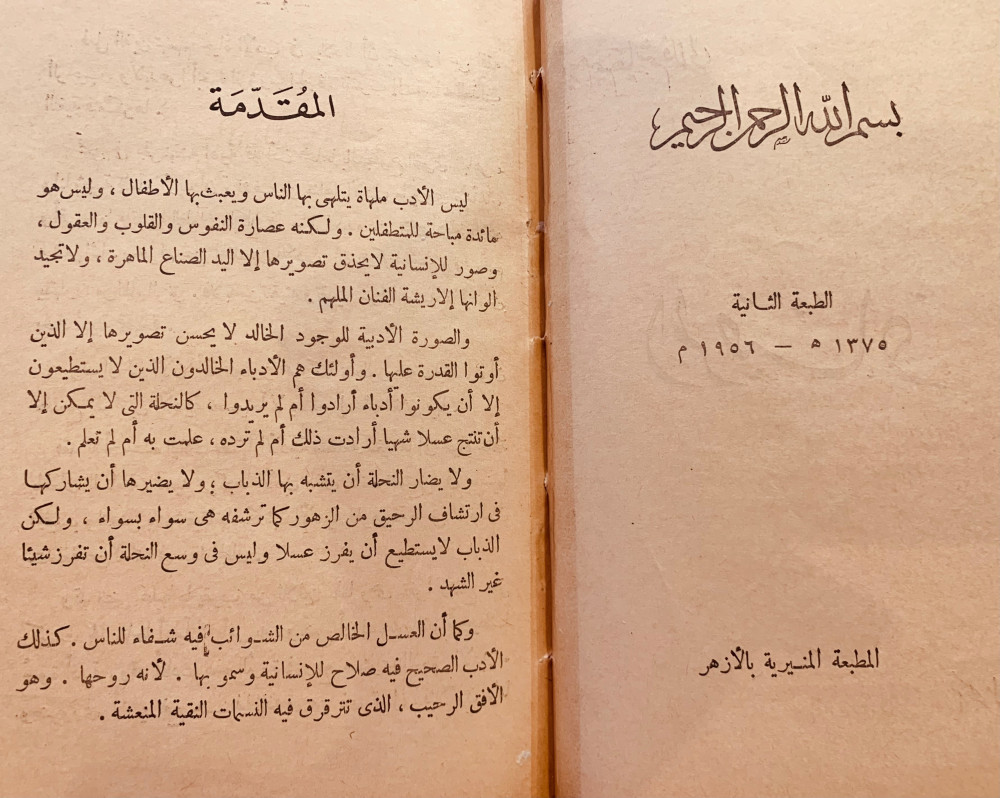 بسم الله الرحمن الرحيم
الطبعة الثانية
١٣٧٥ ه — ١٩٥٦ م
المطبعة المنيرية بالأزهر
المُقَدِّمَة
ليس الأدب ملهاة يتلهى بها الناس ويعبث بها الأطفال ، وليس هو
مائدة مباحة للمتطفلين . ولكنه عصارة النفوس والقلوب والعقول ،
وصور للإنسانية لا يحذق تصويرها إلا اليد الصناع الماهرة ، ولا تجيد
الوانها إلا ريشة الفنان الملهم .
والصورة الأدبية للوجود الخالد لا يحسن تصويرها إلا الذين
أوتوا القدرة عليها . وأولئك هم الأدباء الخالدون الذين لا يستطيعون
إلا أن يكونوا أدباء أرادوا أم لم يريدوا ، كالنحلة التى لا يمكن إلا
أن تنتج عسلا شهيا أرادت ذلك أم لم ترده ، علمت به أم لم تعلم .
ولا يضار النحلة أن يتشبه بها الذباب ، ولا يضيرها أن يشاركها
فى ارتشاف الرحيق من الزهور كما ترشفه هى سواء بسواء ، ولكن
الذباب لا يستطيع أن يفرز عسلا وليس فى وسع النحلة أن تفرز شيئا
غير الشهد .
وكما أن العسل الخالص من الشوائب فيه شفاء للناس . كذلك
الأدب الصحيح فيه صلاح للإنسانية وسمو بها . لأنه روحها . وهو
الأفق الرحيب ، الذى تترقرق فيه النسمات النقية المنعشة .